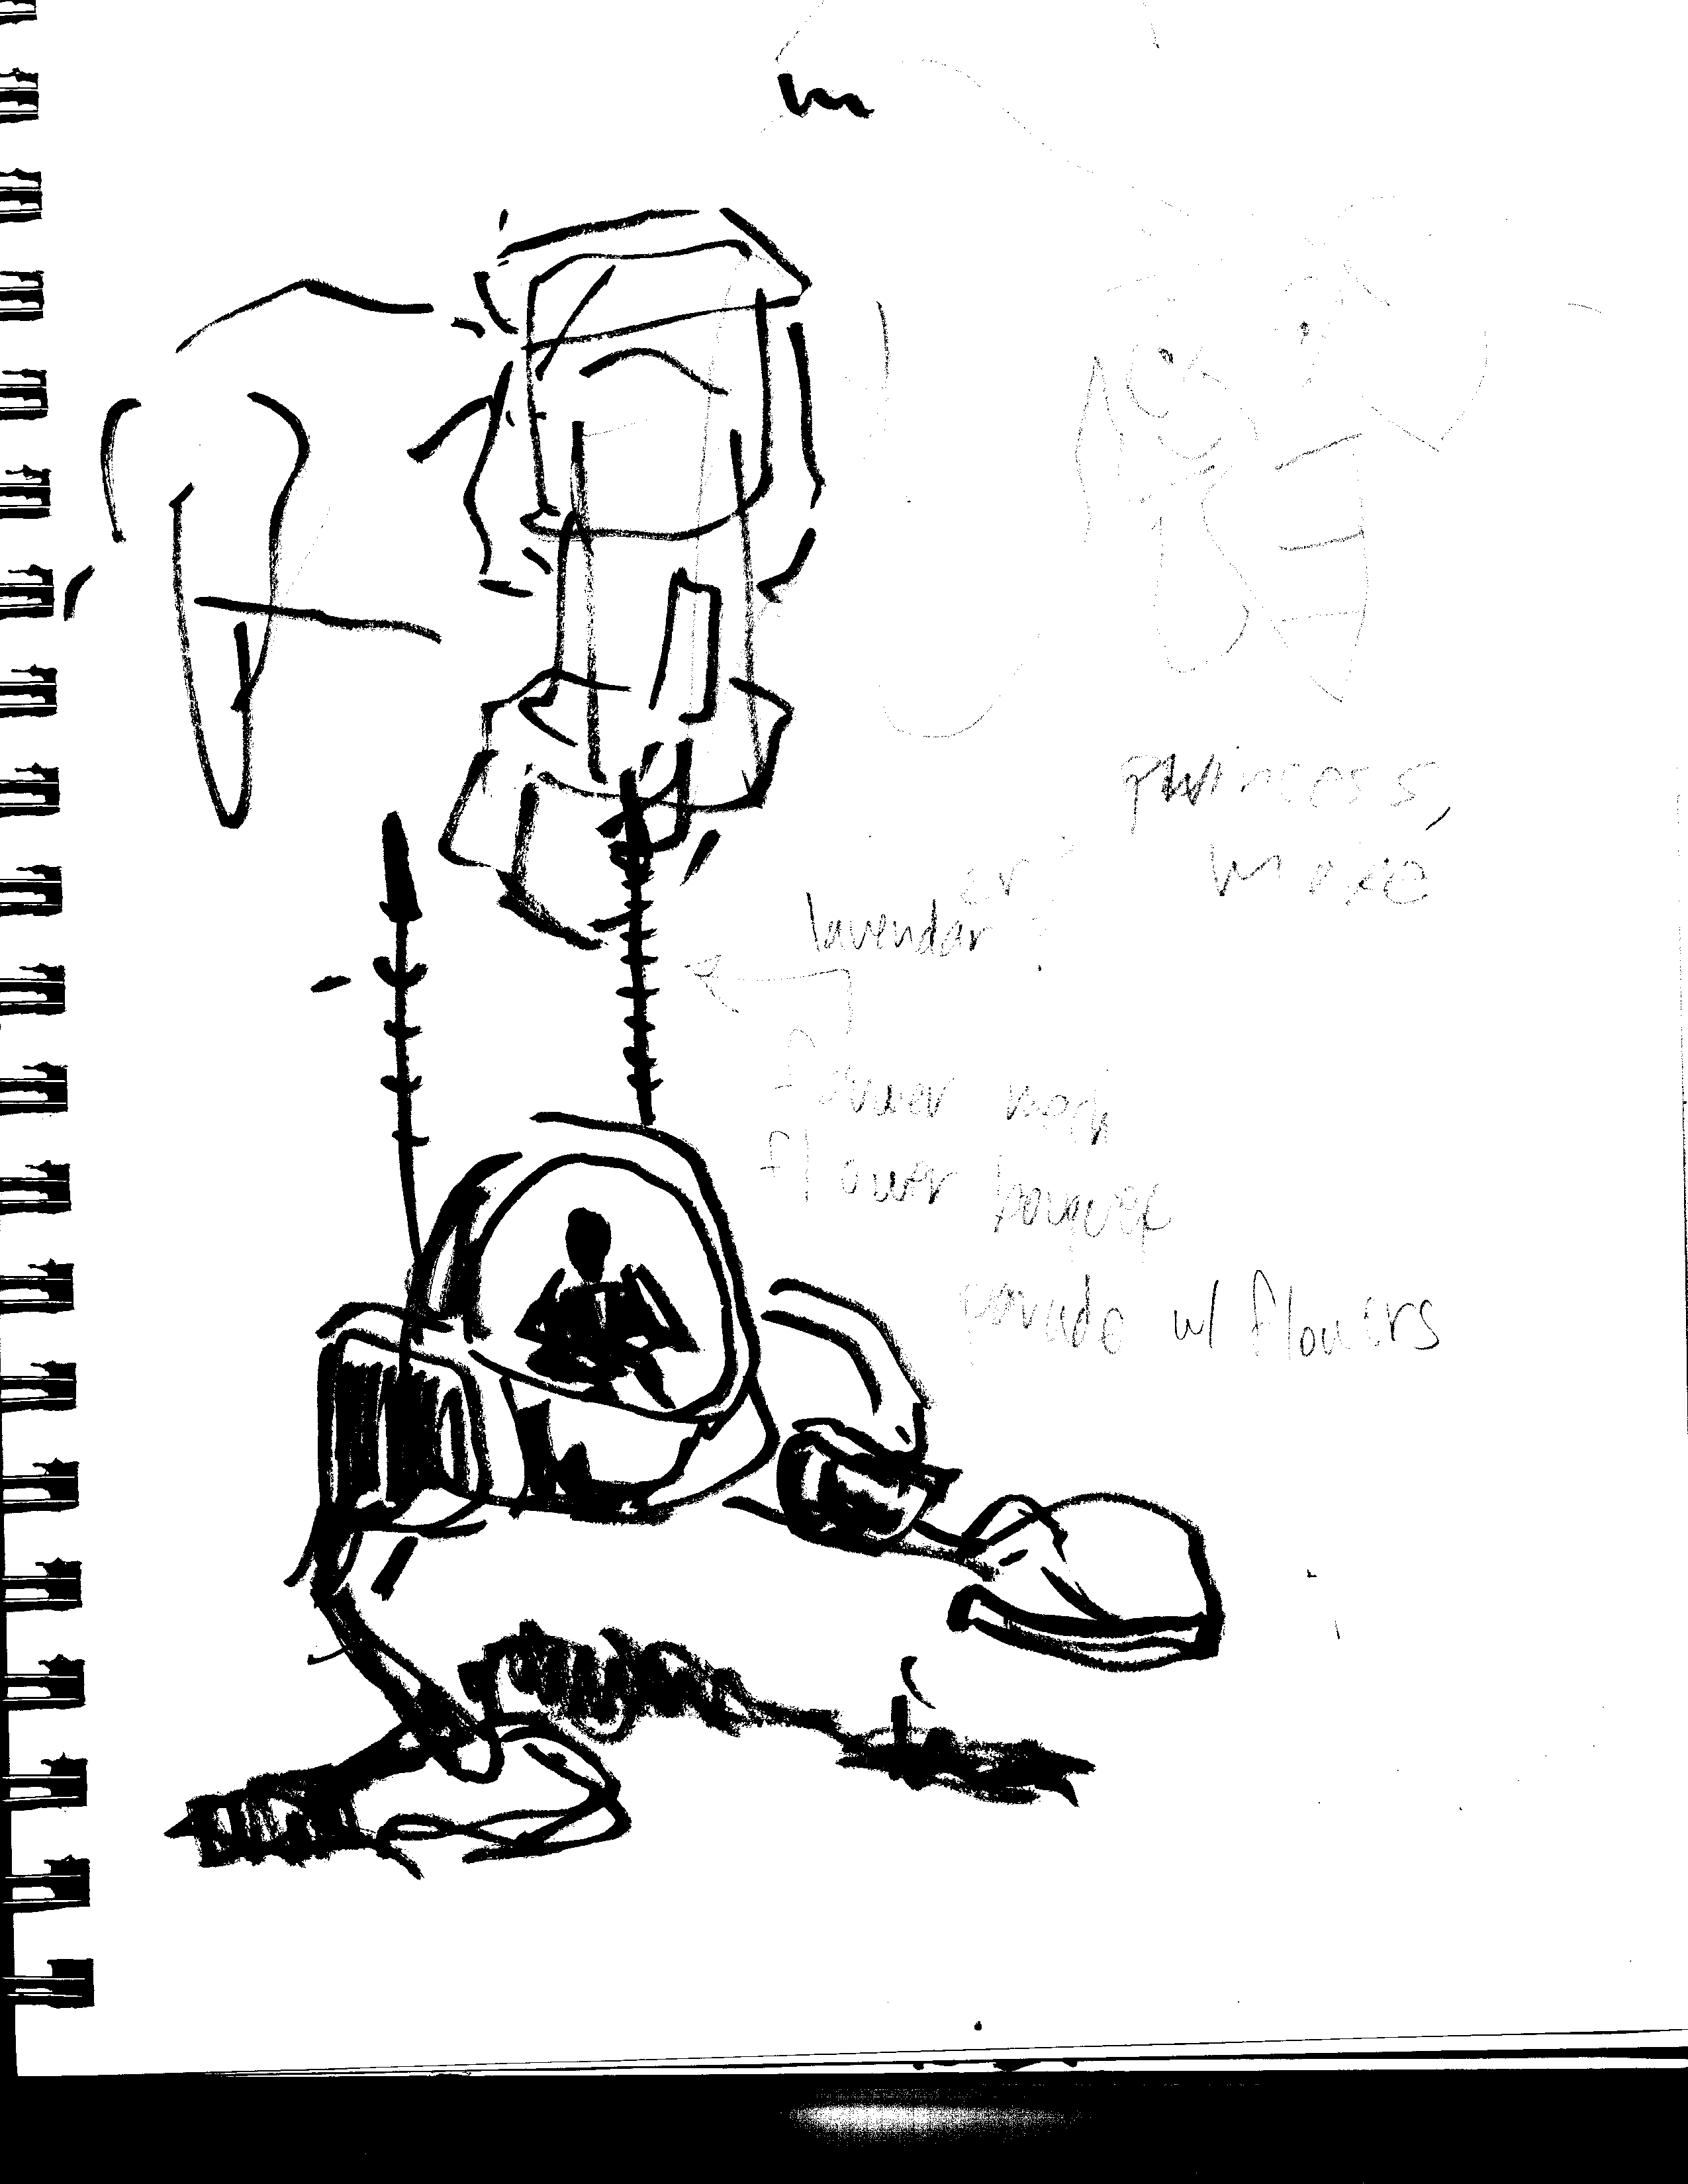 princess,
more
er
lavendar ?
flower mech
flower bouquet
parade w/ flowers